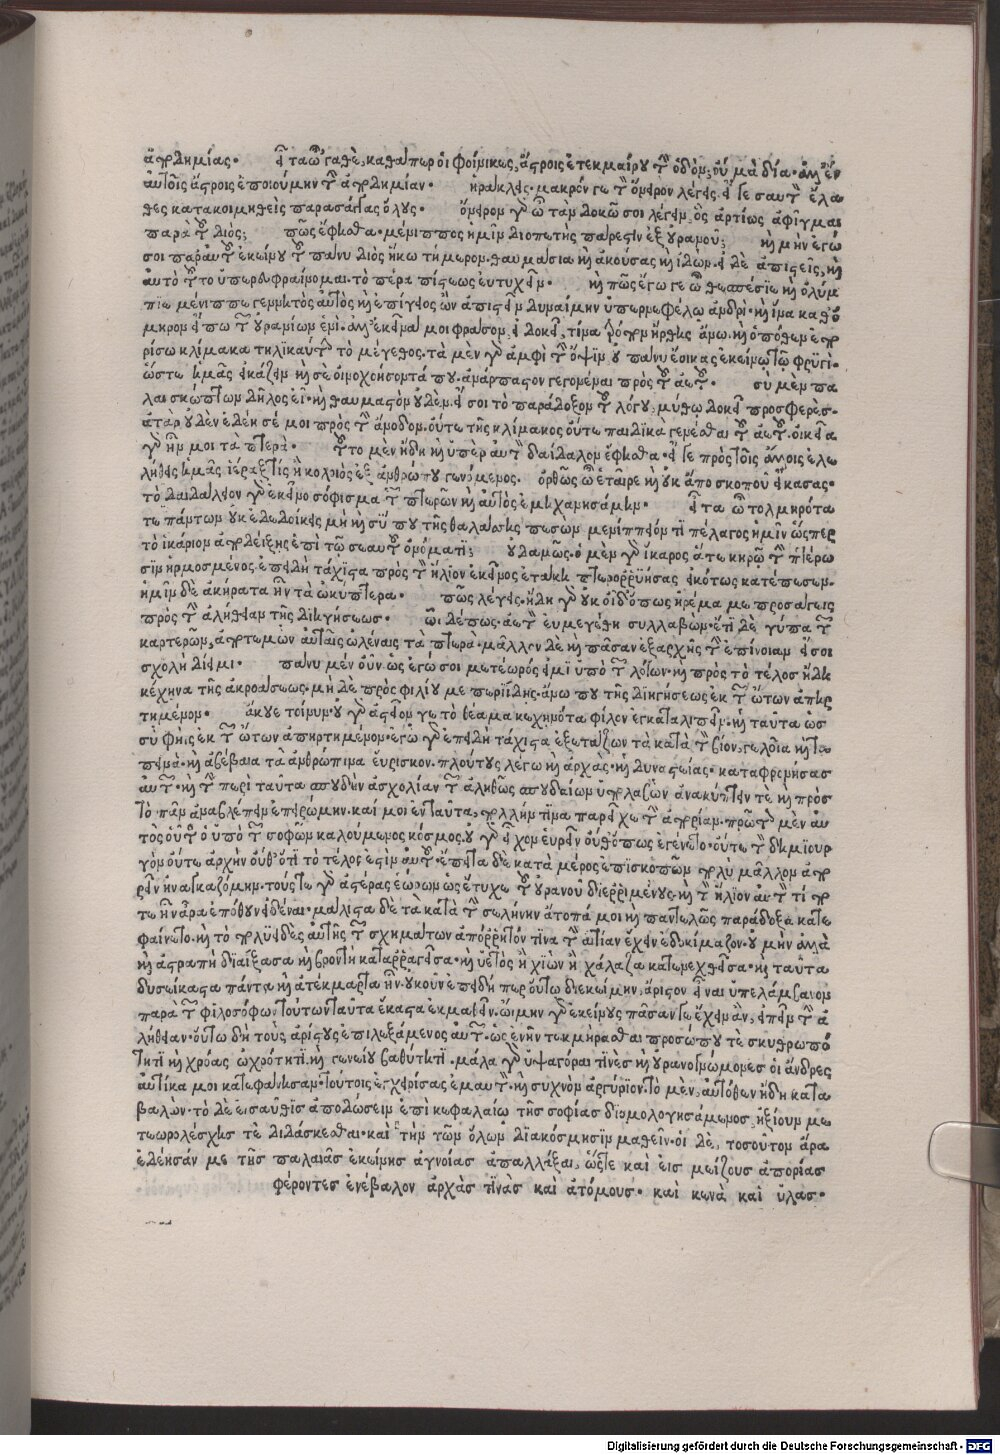 ἀποδημίας. εἶτα ὦγαθὲ, καθάπερ οἱ φοίνικες, ἄστροις ἐτεκμαίρου τὴν ὁδὸν; οὐ μὰ δία. ἀλλ' ἐν
αὐτοῖς ἄστροις ἐποιούμην τὴν ἀποδημίαν. ἡράκλεις. μακρόν γε τὸν ὄνειρον λέγεις. εἴ γε σαυτὸν ἔλα
θες κατακοιμηθεὶς παρασάγγας ὅλους. ὄνειρον γὰρ ὦ τὰν δοκῶ σοι λέγειν, ὃς ἀρτίως ἀφῖγμαι
παρὰ τοῦ διός; πῶς ἔφησθα. μένιππος ἡμῖν διοπετὴς πάρεστιν ἐξ οὐρανοῦ; καὶ μὴν ἐγώ
σοι παρ' αὐτοῦ ἐκείνου τοῦ πάνυ διὸς ἥκω τήμερον. θαυμάσια καὶ ἀκούσας καὶ ἰδών. εἰ δὲ ἀπιστεῖς, καὶ
αὐτὸ τοῦτο ὑπερευφραίνομαι. τὸ πέρα πίστεως εὐτυχεῖν. καὶ πῶς ἔγωγε ὦ θεσπέσιε καὶ ὀλύμ
πιε μένιππε γεννητὸς αὐτὸς καὶ ἐπίγειος ὢν ἀπιστεῖν δυναίμην ὑπερνεφέλῳ ἀνδρί. καὶ ἵνα καθ' ὅ
μηρον εἴπω τῶν οὐρανίων ἑνί. ἀλλ' ἐκεῖνά μοι φράσον, εἰ δοκεῖ, τίνα τρόπον ἤρθης ἄνω. καὶ ὁπόθεν ἐπο
ρίσω κλίμακα τηλικαύτην τὸ μέγεθος. τὰ μὲν γὰρ ἀμφὶ τὴν ὄψιν οὐ πάνυ ἔοικας ἐκείνῳ τῷ φρυγί.
ὥστε ἡμᾶς εἰκάζειν καὶ σὲ οἰνοχοήσοντά που. ἀνάρπαστον γεγονέναι πρὸς τοῦ ἀετοῦ. σὺ μὲν πά
λαι σκώπτων δῆλος εἶ. καὶ θαυμαστὸν οὐδὲν. εἴ σοι τὸ παράδοξον τοῦ λόγου, μύθῳ δοκεῖ προσφερὲς.
ἀτὰρ οὐδὲν ἐδέησέ μοι πρὸς τὴν ἄνοδον. οὔτε τῆς κλίμακος οὔτε παιδικὰ γενέσθαι τοῦ ἀετοῦ. οἰκεῖα
γὰρ ἦν μοι τὰ πτερά. τοῦτο μὲν ἤδη καὶ ὑπὲρ αὐτὸν δαίδαλον ἔφησθα. εἴ γε πρὸς τοῖς ἄλλοις ἐλε
λήθεις ἡμᾶς ἱέραξ τις ἢ κολοιὸς ἐξ ἀνθρώπου γενόμενος. ὀρθῶς ὦ ἑταῖρε καὶ οὐκ ἄπο σκοποῦ εἴκασας.
τὸ δαιδάλειον γὰρ ἐκεῖνο σόφισμα τῶν πτερῶν καὶ αὐτὸς ἐμηχανησάμην. εἶτα ὦ τολμηρότα
τε πάντων οὐκ ἐδεδοίκεις μὴ καὶ σύ που τῆς θαλάσσης πεσὼν μενίππειόν τι πέλαγος ἡμῖν ὥσπερ
τὸ ἰκάριον ἀποδείξῃς ἐπὶ τῷ σεαυτοῦ ὀνόματι; οὐδαμῶς. ὁ μὲν γὰρ ἴκαρος ἅτε κηρῷ τὴν πτέρω
σιν ἡρμοσμένος. ἐπειδὴ τάχιστα πρὸς τὸν ἥλιον ἐκεῖνος ἐτάκη πτερορρυήσας εἰκότως κατέπεσεν.
ἡμῖν δὲ ἀκήρατα ἦν τὰ ὠκύπτερα. πῶς λέγεις. ἤδη γὰρ οὐκ οἶδ' ὅπως ἠρέμα με προσάγεις
πρὸς τὴν ἀλήθειαν τῆς διηγήσεως. ὧδέ πως. ἀετὸν εὐμεγέθη συλλαβὼν. ἔτι δὲ γύπα τῶν
καρτερῶν, ἀποτεμὼν αὐταῖς ὠλέναις τὰ πτερὰ. μᾶλλον δὲ καὶ πᾶσαν ἐξαρχῆς τὴν ἐπίνοιαν εἴ σοι
σχολὴ δίειμι. πάνυ μὲν οὖν. ὡς ἐγώ σοι μετέωρός εἰμι ὑπὸ τῶν λόγων. καὶ πρὸς τὸ τέλος ἤδη
κέχηνα τῆς ἀκροάσεως. μηδὲ πρὸς φιλίου με περιίδῃς. ἄνω που τῆς διηγήσεως ἐκ τῶν ὤτων ἀπηρ
τημένον. ἄκουε τοίνυν. οὐ γὰρ ἀστεῖόν γε τὸ θέαμα κεχηνότα φίλον ἐγκαταλιπεῖν. καὶ ταῦτα ὡς
σὺ φῂς ἐκ τῶν ὤτων ἀπηρτημένον. ἐγὼ γὰρ ἐπειδὴ τάχιστα ἐξετάζων τὰ κατὰ τὸν βίον, γελοῖα καὶ τα
πεινὰ. καὶ ἀβέβαια τὰ ἀνθρώπινα εὕρισκον. πλούτους λέγω καὶ ἀρχὰς. καὶ δυναστείας. καταφρονήσας
αὐτῶν. καὶ τὴν περὶ ταῦτα σπουδὴν ἀσχολίαν τῶν ἀληθῶς σπουδαίων ὑπολαβὼν ἀνακύπτειν τὲ καὶ πρὸς
τὸ πᾶν ἀναβλέπειν ἐπειρώμην. καί μοι ἐνταῦτα, πολλήν τινα παρεῖχε τὴν ἀπορίαν. πρῶτον μὲν αὐ
τὸς οὗτος ὁ ὑπὸ τῶν σοφῶν καλούμενος κόσμος. οὐ γὰρ εἶχον εὑρεῖν οὔθ' ὅπως ἐγένετο. οὔτε τὸν δημιουρ
γὸν οὔτε ἀρχὴν οὔθ' ὅτι τὸ τέλος ἐστὶν αὐτοῦ. ἔπειτα δὲ κατὰ μέρος ἐπισκοπῶν πολὺ μᾶλλον ἀπο
ρεῖν ἠναγκαζόμην. τούς τε γὰρ ἀστέρας ἑώρων ὡς ἔτυχε τοῦ οὐρανοῦ διερριμένους. καὶ τὸν ἥλιον αὐτὸν τί πο
τε ἦν ἄρα ἐπόθουν εἰδέναι. μάλιστα δὲ τὰ κατὰ τὴν σελήνην ἄτοπά μοι καὶ παντελῶς παράδοξα κατε
φαίνετο. καὶ τὸ πολυειδὲς αὐτῆς τῶν σχημάτων ἀπόρρητόν τινα τὴν αἰτίαν ἔχειν ἐδοκίμαζον. οὐ μὴν ἀλλὰ
καὶ ἀστραπὴ διαίξασα καὶ βροντὴ καταρραγεῖσα. καὶ ὑετὸς ἢ χιὼν ἢ χάλαζα κατενεχθεῖσα. καὶ ταῦτα
δυσείκαστα πάντα καὶ ἀτέκμαρτα ἦν. οὐκοῦν ἐπειδή περ οὕτω διεκείμην, ἄριστον εἶναι ὑπελάμβανον
παρὰ τῶν φιλοσόφων τούτων ταῦτα ἕκαστα ἐκμαθεῖν. ᾤμην γὰρ ἐκείνους πᾶσαν γε ἔχειν ἂν, εἰπεῖν τὴν ἀ
λήθειαν. οὕτω δὴ τοὺς ἀρίστους ἐπιλεξάμενος αὐτῶν. ὡς ἐνῆν τεκμήρασθαι προσώπου τὲ σκυθρωπό
τητι καὶ χρόας ὠχρότητι. καὶ γενείου βαθύτητι. μάλα γὰρ ὑψαγόραι τινὲς καὶ οὐρανογνώμονες οἱ ἄνδρες
αὐτίκα μοι κατεφάνησαν. τούτοις ἐγχειρίσας ἐμαυτὸν. καὶ συχνὸν ἀργύριον. τὸ μὲν, αὐτόθεν ἤδη κατα
βαλὼν. τὸ δὲ εἰσαῦθις ἀποδώσειν ἐπὶ κεφαλαίῳ τῆς σοφίας διομολογησάμενος, ἠξίουν με
τεωρολέσχης τὲ διδάσκεσθαι. καὶ τὴν τῶν ὅλων διακόσμησιν μαθεῖν. οἱ δὲ, τοσοῦτον ἄρα
ἐδέησάν με τῆς παλαιᾶς ἐκείνης ἀγνοίας ἀπαλλάξαι, ὥστε καὶ εἰς μείζους ἀπορίας
φέροντες ἐνέβαλον ἀρχάς τινὰς καὶ ἀτόμους. καὶ κενὰ καὶ ὕλας.
Digitalisierung gefördert durch die Deutsche Forschungsgemeinschaft - DFG